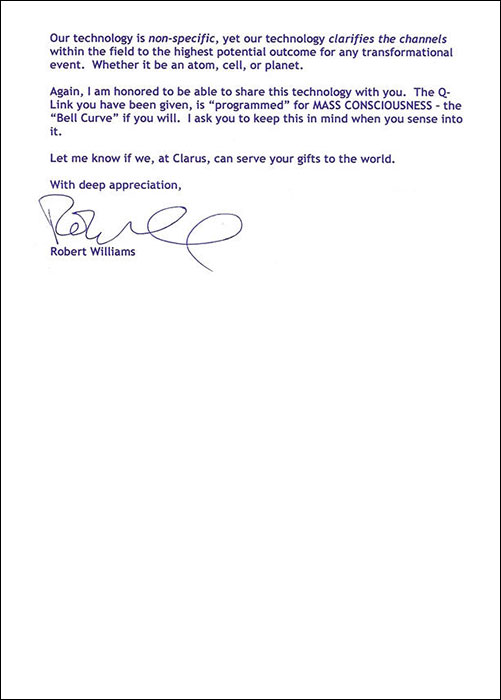 Our technology is non-specific, yet our technology clarifies the channels
within the field to the highest potential outcome for any transformational
event.  Whether it be an atom, cell, or planet.
Again, I am honored to be able to share this technology with you.  The Q-
Link you have been given, is “programmed” for MASS CONSCIOUSNESS – the
“Bell Curve” if you will.  I ask you to keep this in mind when you sense into
it.
Let me know if we, at Clarus, can serve your gifts to the world.
With deep appreciation,
Robert Williams